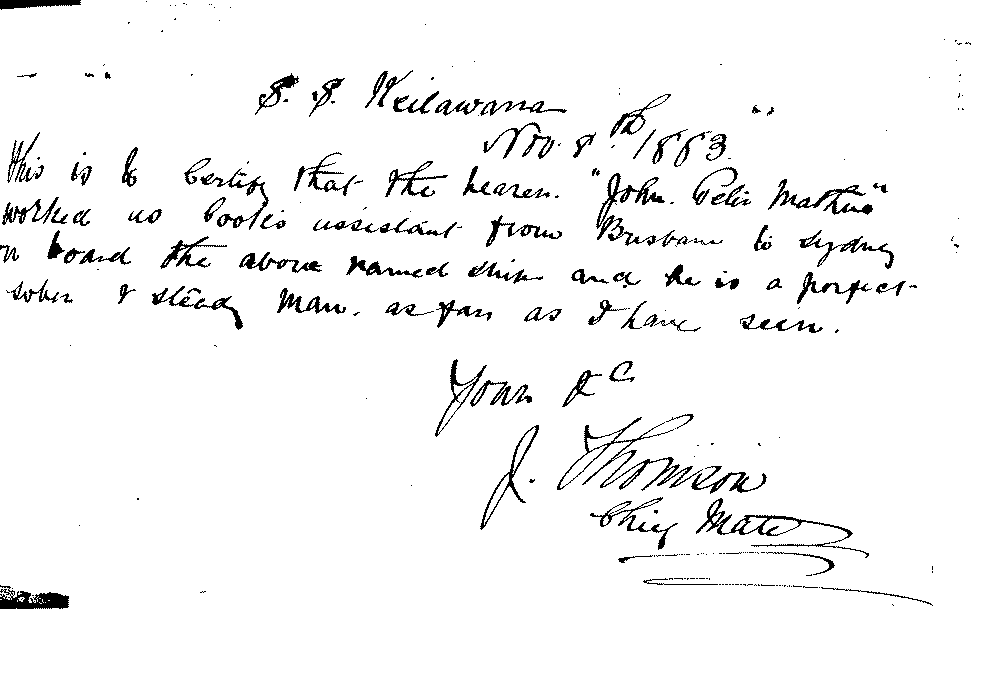 S. S. Keilawarra
Nov. 8th 1883
This is to Certify that the bearer. "John. Felix Mathews"
worked as Cook's assistant from Brisbane to Sydney
on board the above named ship and he is a perfect
sober & steady man. as far as I have seen.
Yours &c
J. Thomson
Chief Mate